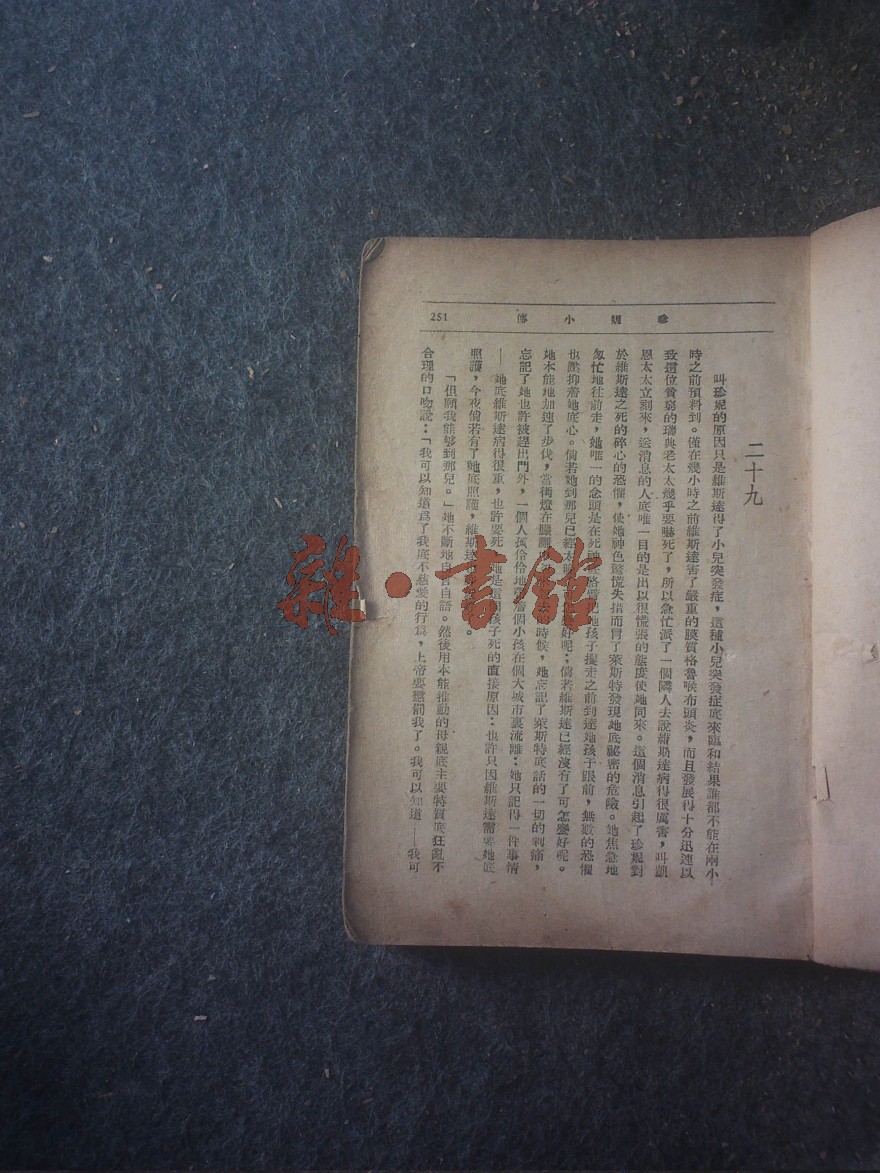 珍妮小傳
251
二十九
叫珍妮的原因只是維斯達得了小兒突發症，這種小兒突發症底來臨和結果誰都不能在兩小
時之前預料到。僅在幾小時之前維斯達害了嚴重的膜質格魯喉布頭炎，而且發展得十分迅速以
致這位貧窮的瑞典老太太幾乎要嚇死了，所以急忙派了一個隣人去說維斯達病得很厲害，叫凱
恩太太立刻來，送消息的人底唯一目的是出以很慌張的態度使她同來。這個消息引起了珍妮對
於維斯達之死的碎心的恐懼，使她神色驚慌失措而冒了萊斯特發現她底祕密的危險。她焦急地
匆忙地往前走，她唯一的念頭是在死神 把她孩子提走之前到達她孩子眼前，無數的恐懼
也壓抑着她底心。倘若她到那兒已經太 好呢；倘若維斯達已經沒有了可怎麼好呢。
她本能地加速了步伐，當街燈在朦朧 時候，她忘記了萊斯特底話的一切的刺痛，
忘記了她也許被趕出門外，一個人孤伶伶地帶着個小孩在個大城市裏流離；她只記得一件事情
——她底維斯達病得很重，也許要死，她是這個孩子死的直接原因；也許只因維斯達需要她底
照護，今夜倘若有了她底照護，維斯達 。
「但願我能够到那兒。」她不斷地自言自語。然後用本能推動的母親底主要特質底狂亂不
合理的口吻說：「我可以知道爲了我底不慈愛的行爲，上帝要懲罰我了。我可以知道——我可
雜·書館